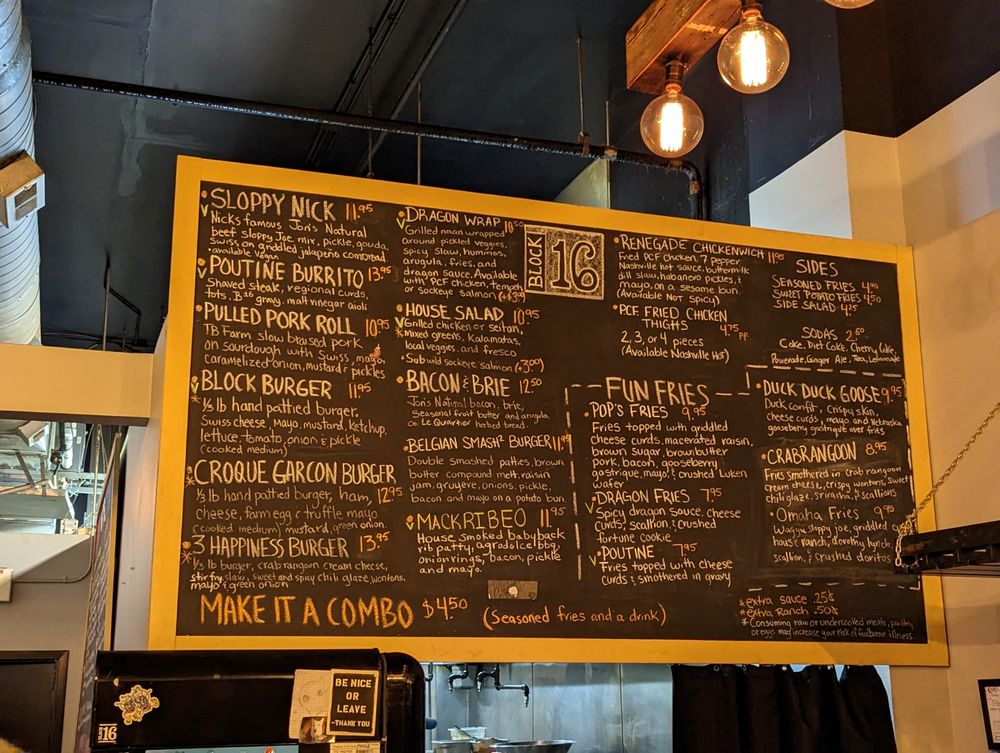 SLOPPY NICK 11.95
Nicks famous Jon's Natural
beef sloppy Joe mix, pickle, gouda,
swiss on griddled jalapeno cornbread.
•available vegan
POUTINE BURRITO 13.95
Shaved steak, regional curds,
tots, B16 gravy, malt vinegar aioli
PULLED PORK ROLL 10.95
TB Farm slow braised pork
on sourdough with Swiss, mayo,
caramelized onion, mustard & pickles
BLOCK BURGER 11.95
1/3 lb hand pattied burger.
Swiss cheese, Mayo, mustard, ketchup,
lettuce, tomato, onion & pickle
(cooked medium)
CROQUE GARCON BURGER
1/3 lb hand pattied burger, ham, 12.95
cheese, farm egg & truffle mayo
(cooked medium) mustard, green onion
3 HAPPINESS BURGER 13.95
1/3 lb burger, crab rangoon cream cheese,
stir fry slaw, sweet and spicy chili glaze, wontons,
mayo & green onion
MAKE IT A COMBO $4.50 (Seasoned fries and a drink)
DRAGON WRAP 10.50
Grilled naan wrapped
around pickled veggies,
Spicy slaw, hummus,
arugula, fries, and
dragon sauce. Available
with PCF chicken, tempeh,
or sockeye salmon (+3.00)
HOUSE SALAD 10.95
Grilled chicken or seitan,
Mixed greens, Kalamatas,
local veggies, and fresco
•Sub wild sockeye salmon (+3.00)
BACON & BRIE 12.50
Jon's Natural bacon, brie,
Seasonal fruit butter and arugula
on Le Quartier herbed bread.
BELGIAN SMASH² BURGER 11.99
Double smashed patties, brown
butter compound melt, raisin
jam, gruyere, onions, pickle,
bacon and mayo on a potato bun.
MACKRIBEO 11.95
House smoked babyback
rib patty, agrodolce bbq,
onion rings, bacon, pickle
and mayo.
BLOCK 16
RENEGADE CHICKENWICH 11.95
Fried PCF chicken, 7 pepper
Nashville hot sauce, buttermilk
dill slaw, habanero pickles, &
mayo, on a sesame bun.
(Available Not Spicy)
PCF FRIED CHICKEN
THIGHS 4.75 pp
2, 3, or 4 pieces
(Available Nashville Hot)
FUN FRIES
POP'S FRIES 9.95
Fries topped with griddled
cheese curds, macerated raisin,
brown sugar, brown butter
pork, bacon, gooseberry
gastrique, mayo, & crushed Luken
wafer
DRAGON FRIES 7.95
Spicy dragon sauce, cheese
curds, scallion & crushed
fortune cookie
POUTINE 7.95
Fries topped with cheese
curds & smothered in gravy
SIDES
SEASONED FRIES 4.00
SWEET POTATO FRIES 4.50
SIDE SALAD 4.25
SODAS 2.50
Coke, Diet Coke, Cherry Coke,
Powerade, Ginger Ale, Tea, Lemonade
DUCK DUCK GOOSE 9.95
Duck confit, crispy skin,
cheese curds, mayo and Nebraska
gooseberry gastrique over fries
CRABRANGOON 8.95
Fries smothered in crab rangoon
cream cheese, crispy wontons, sweet
chili glaze, sriracha, & scallions
Omaha Fries 9.95
Wagyu sloppy joe, griddled
house ranch, dorothy lynch,
scallion, & crushed doritos
*extra sauce .25¢
*extra Ranch .50¢
*Consuming raw or undercooked meats, poultry
or eggs may increase your risk of foodborne illness.
BE NICE
OR
LEAVE
-THANK YOU
16